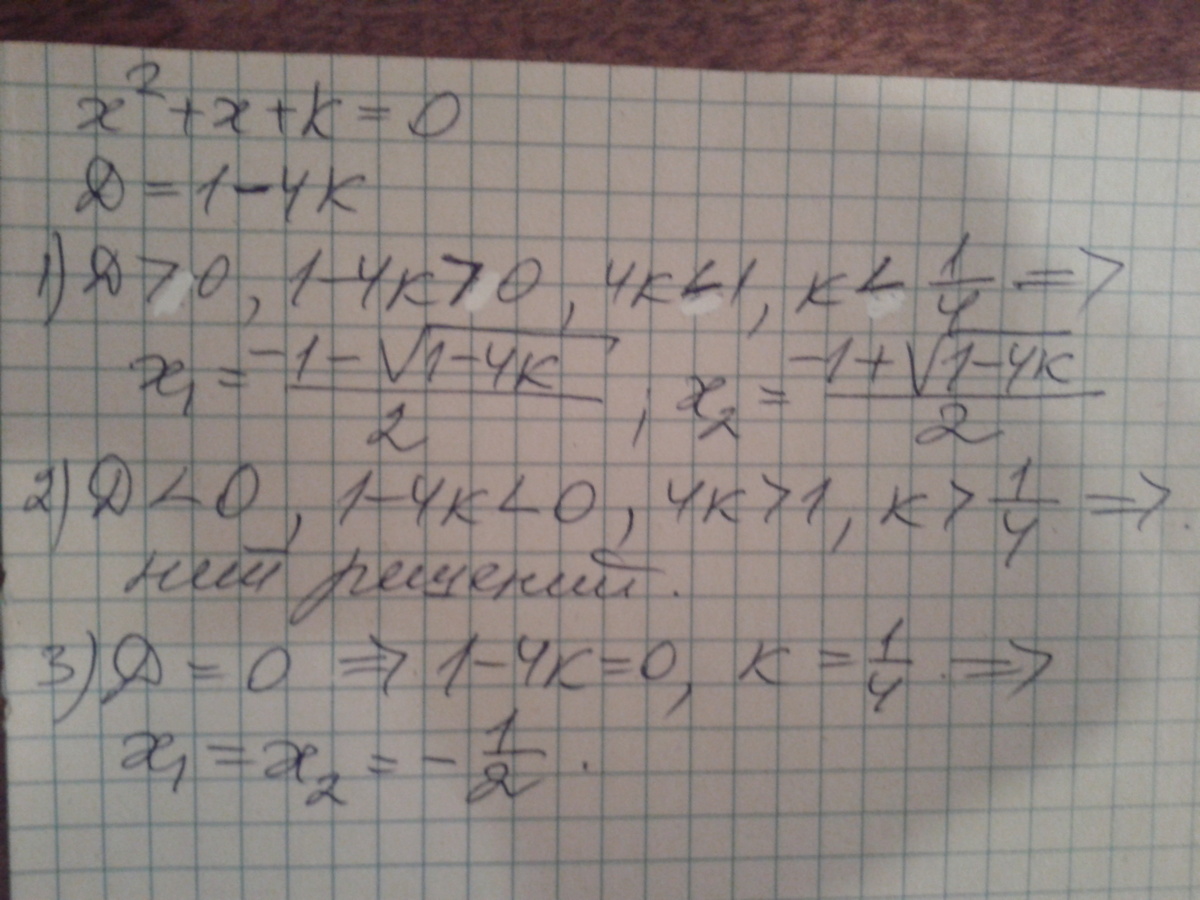 x² + x + k = 0
D = 1 - 4k
1) D > 0, 1 - 4k > 0, 4k < 1, k < 1/4 =>
x₁ = (-1 - √(1 - 4k))/2 ; x₂ = (-1 + √(1 - 4k))/2
2) D < 0, 1 - 4k < 0, 4k > 1, k > 1/4 =>
ний решений.
3) D = 0 => 1 - 4k = 0, k = 1/4 =>
x₁ = x₂ = - 1/2 .